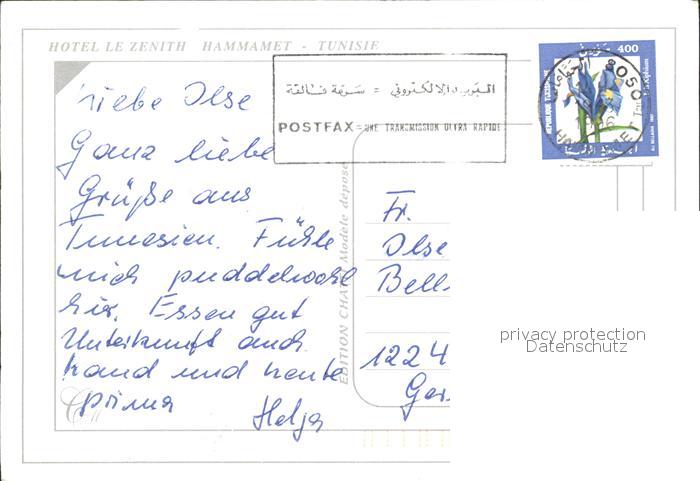 HOTEL LE ZENITH HAMMAMET - TUNISIE
البريد الالكتروني = سرعة فائقة
POSTFAX = UNE TRANSMISSION ULTRA RAPIDE
400
8050
REPUBLIQUE TUNISIENNE
Liebe Ilse
Ganz liebe
Grüße aus
Tunesien. Fühle
mich puddelwohl
hier. Essen gut
Unterkunft auch.
Strand und Leute
prima
Helga
EDITION CHATT Modèle déposé
Fr.
Ilse
Bell
1224
Ger
privacy protection
Datenschutz